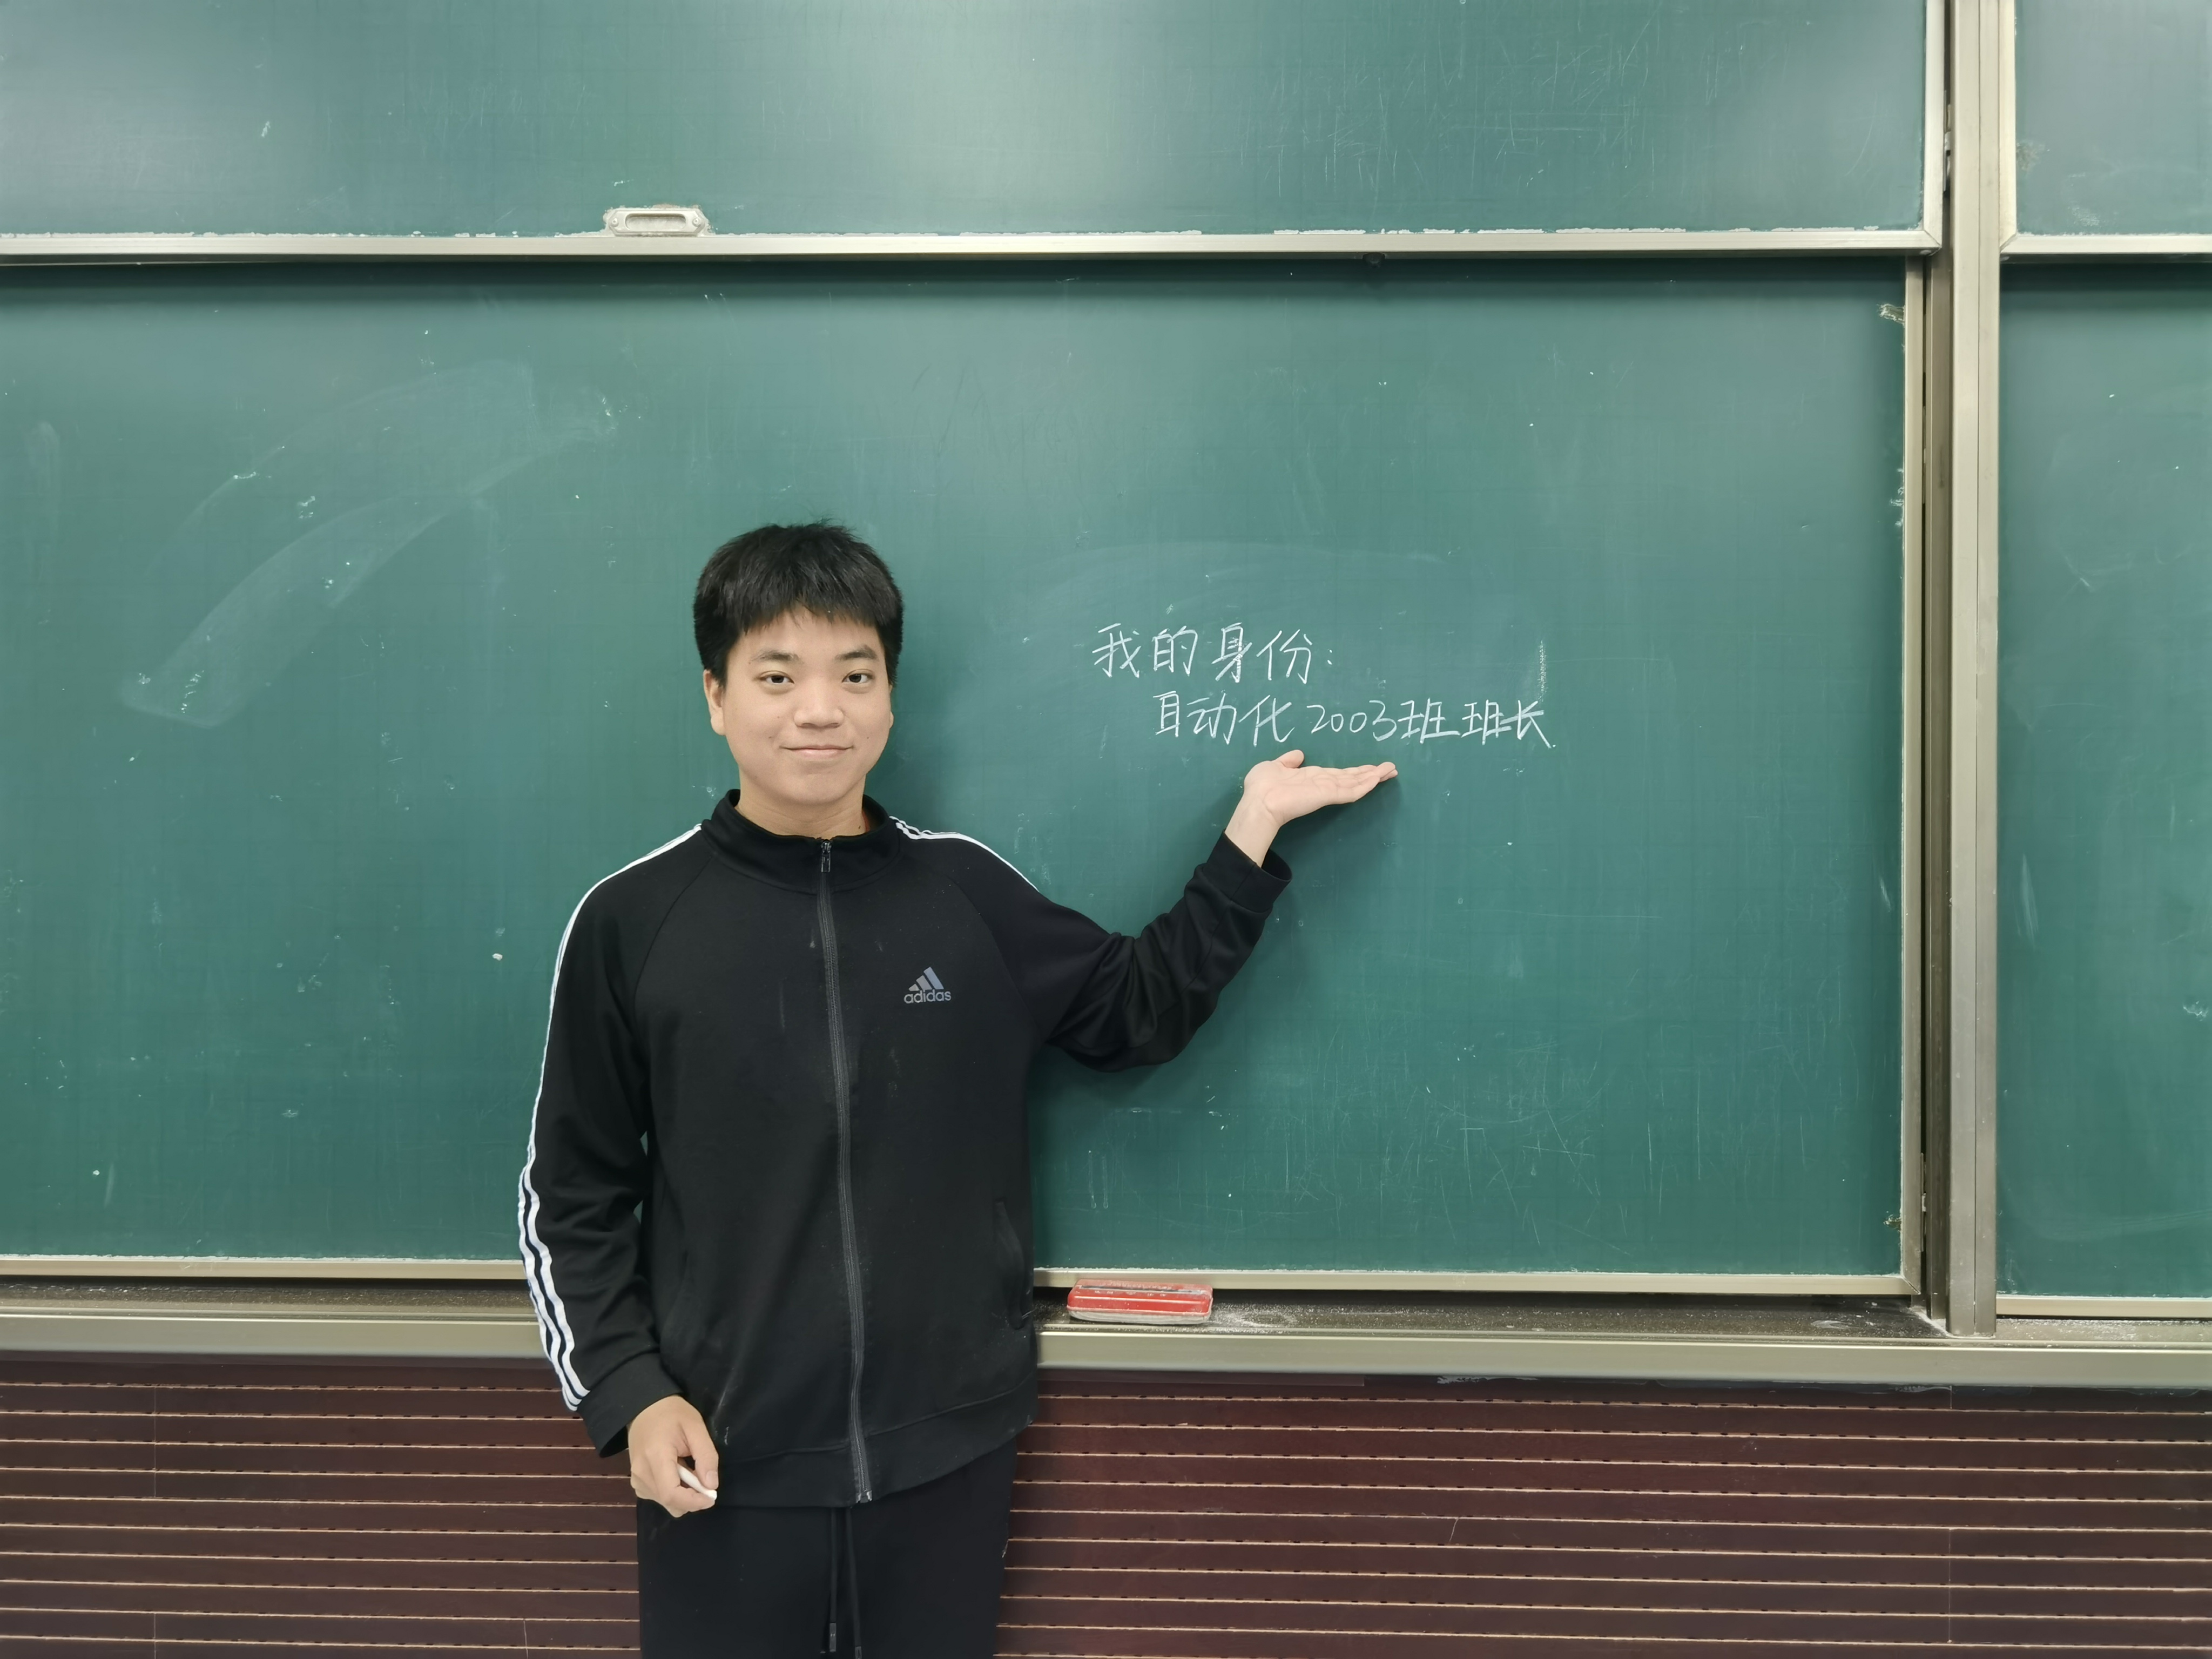 我的身份:
自动化2003班班长
adidas